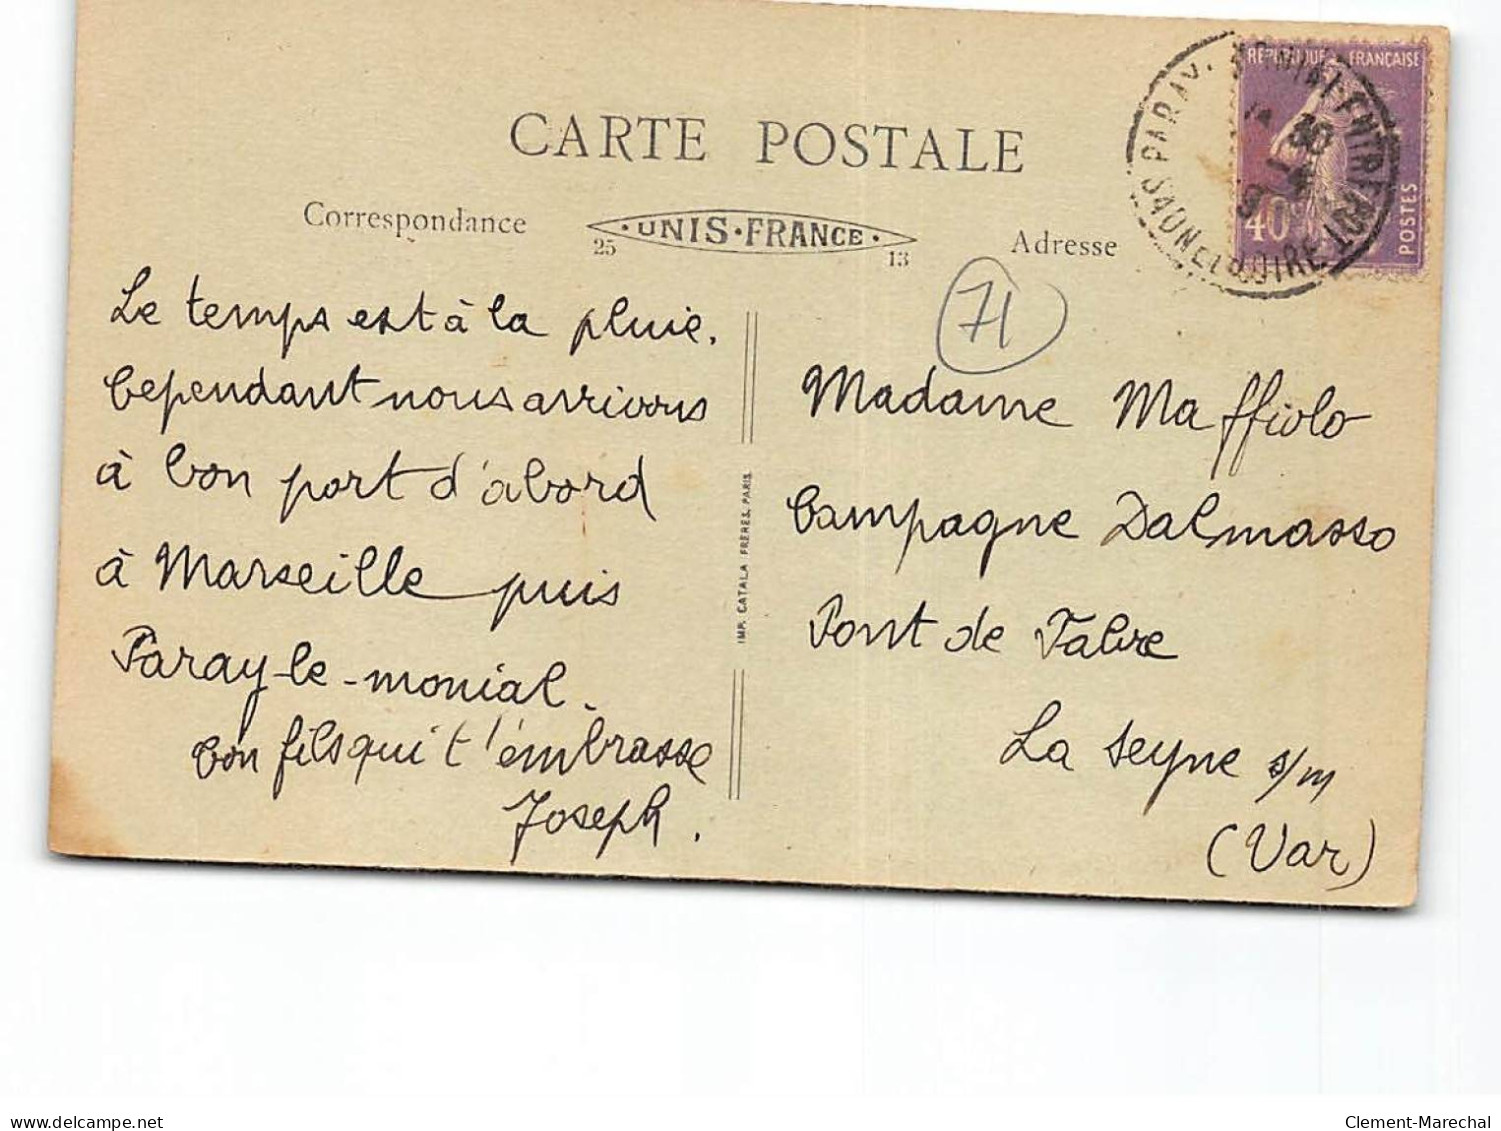 CARTE POSTALE
Correspondance
25 · UNIS · FRANCE · 13
Adresse
RÉPUBLIQUE FRANÇAISE
40c
POSTES
PARAY. ENTREPOT
SAONE LOIRE
30
71
Le temps est à la pluie.
Cependant nous arrivons
à bon port d'abord
à Marseille puis
Paray-le-monial.
Ton fils qui t'embrasse
Joseph.
IMP. CATALA FRÈRES, PARIS
Madame Maffiolo
Campagne Dalmasso
Pont de Fabre
La Seyne s/m
(Var)
www.delcampe.net
Clement-Marechal